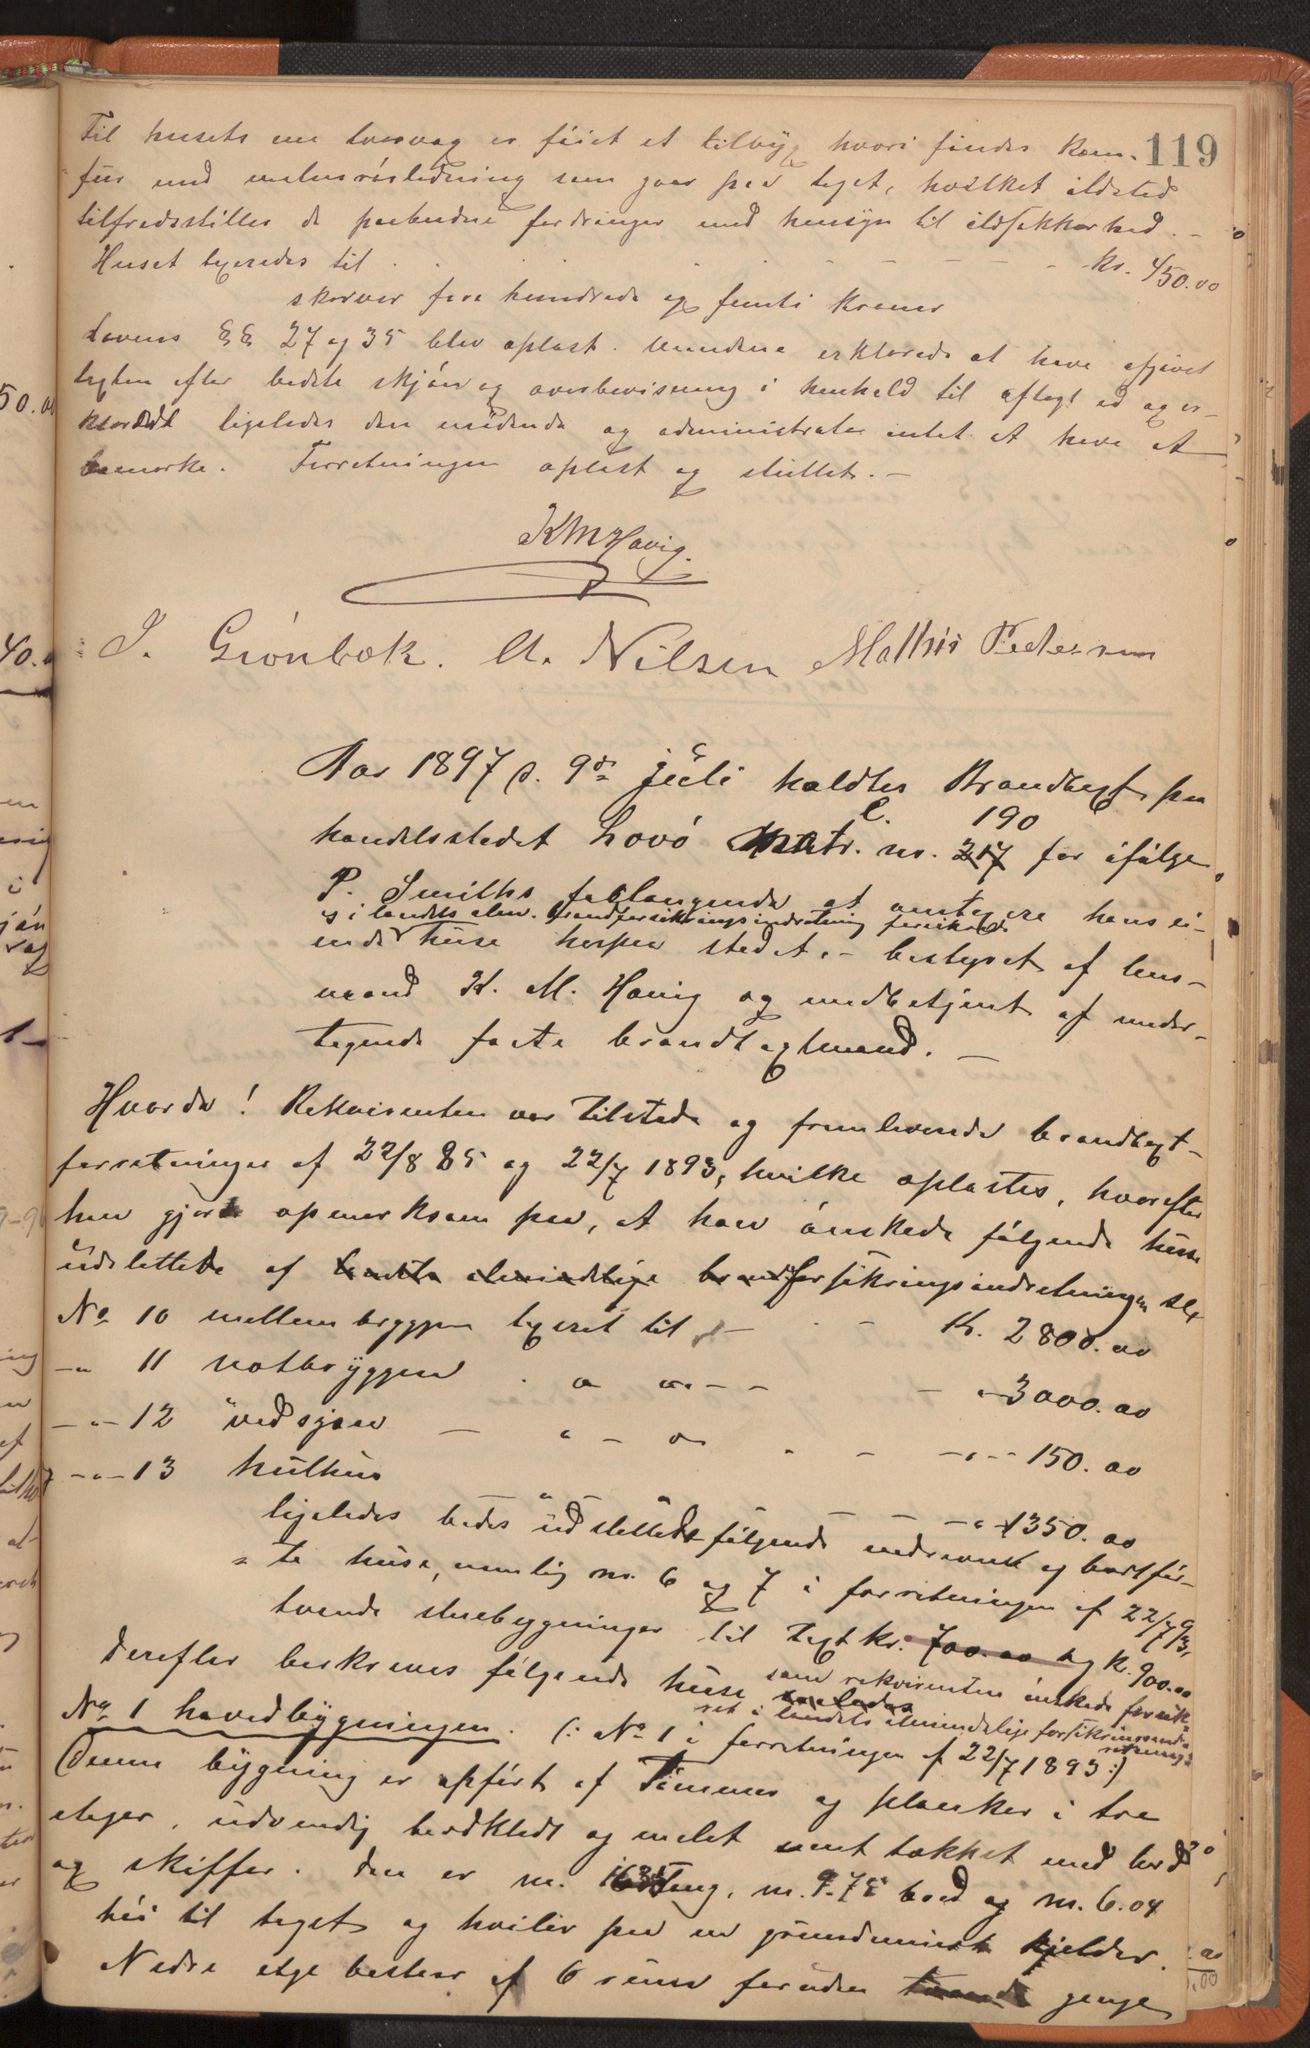 119
Til husets ene tværvæg er föiet et tilbyg hvori findes Kom-
für med malmrörsledning som gaar paa taget, hvilket ildsted
tilfredsstiller de paabudne fordringer med hensyn til ildsikkerhed. -
Huset taxeredes til . . . . . - - - - - kr. 450.00
skriver fire hundrede og femti kroner
Lovens §§ 27 og 35 blev oplæst. Mændene erklærede at have afgivet
taxten efter bedste skjön og overbevisning i henhold til aflagt ed og er-
klærede ligeledes den mödende og administrator intet at have at
bemærke. Forretningen oplæst og sluttet. -
KMHavig.
J. Grönbæk. A. Nilsen Mathis Pedersen
Aar 1897 d. 9de juli holdtes Brandtaxt paa
handelsstedet Lovö matr. L. nr. 217 190 for ifölge
P. Smiths forlangende at omtaxere hans ei-
og i landets alm. brandforsikringsindretning forsikrede
ende huse herpaa stedet. - bestyret af lens-
mand K. M. Havig og medbetjent af under-
tegnede faste brandtaxtmænd. -
Hvorda! Rekvirenten var tilstede og fremleverede brandtaxt-
forretninger af 22/8 85 og 22/7 1893, hvilke oplæstes, hvorefter
han gjorde opmerksom paa, at han önskede fölgende huse
udslettede af landets almindelige brandforsikringsindretningen
No 10 mellembryggen taxeret til - - - K. 2800.00
-"- 11 notbryggen . " " - - - " 3000.00
-"- 12 vedsjaa - " - " . - -"- 150.00
-"- 13 kulhus - " - - - -"- 1350.00
ligeledes bedes udslettede fölgende nedrevne og bortför-
te huse, nemlig nr. 6 og 7 i forretningen af 22/7 93,
tvende stuebygninger til taxt kr. 700.00 og K. 900.00
Derefter beskreves fölgende huse saaledes som rekvirenten önskede forsik-
ret i landets almindelige forsikringsind-
retning:
No 1 hovedbygningen. (: No 1 i forretningen af 22/7 1893 :)
Denne bygning er opfört af Tömmer og planker i tre
etager, udvendig bordklædt og malet samt tækket med bord
og skiffer. Den er m. lang, m. 9.75 bred og m. 6.04
höi til taget og hviler paa en grundmuret kjelder.
Nedre etage bestaar af 6 rum foruden tvende gange